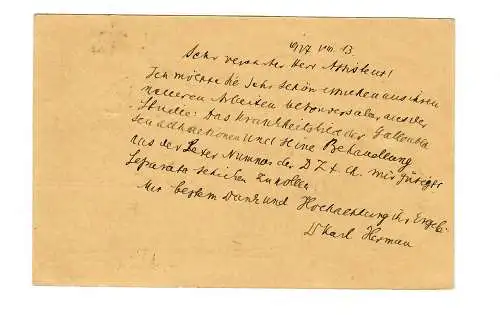 1927 VIII. 13
Sehr verehrter Herr Assistent!
Ich möchte Sie sehr schön aus Ihren
neueren Arbeiten besonders aber aus der
Studie: Das Krankheitsbild der Gallenbla
sen und seine Behandlung
aus der Nummer der D Z f. Ch. mir gütigst
Separata schicken zu wollen.
Mit bestem Dank und Hochachtung ihr Ergeb.
Dr Karl Herman